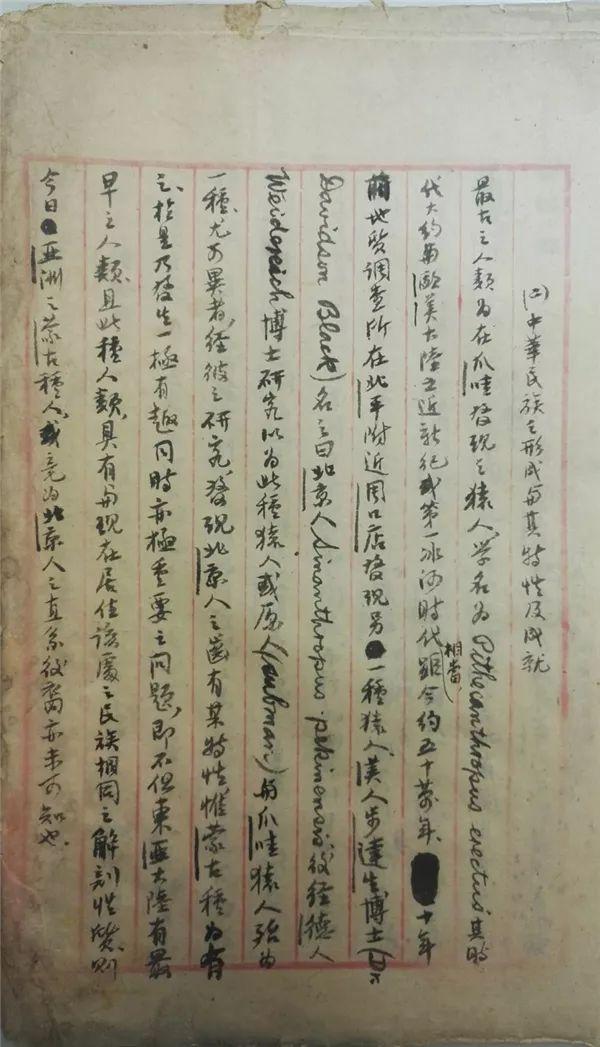 (二)中華民族之形成与其特性及成就
最古之人類為在爪哇發現之猿人，学名為Pithecanthropus erectus，其時
代大約与歐漢大陸之近新紀或第一冰河時代相當，距今約五十萬年。十年
前地質調查所在北平附近周口店發現另一種猿人，美人步達生博士(Dr
Davidson Black)名之曰北京人Sinanthropus pekinensis，後經德人
Weidenreich博士研究以為此種猿人或原人(aubman)与爪哇猿人殆为
一種，尤可異者，經彼之研究，發現北京人之齒有某特性惟蒙古種为有
之，於是乃發生一極有趣同時亦極重要之问题，即不但東亞大陸有最
早之人類，且此種人類，具有与現在居住該處之民族相同之解剖性質，則
今日亞洲之蒙古種人，或竟为北京人之直系後裔亦未可知也。